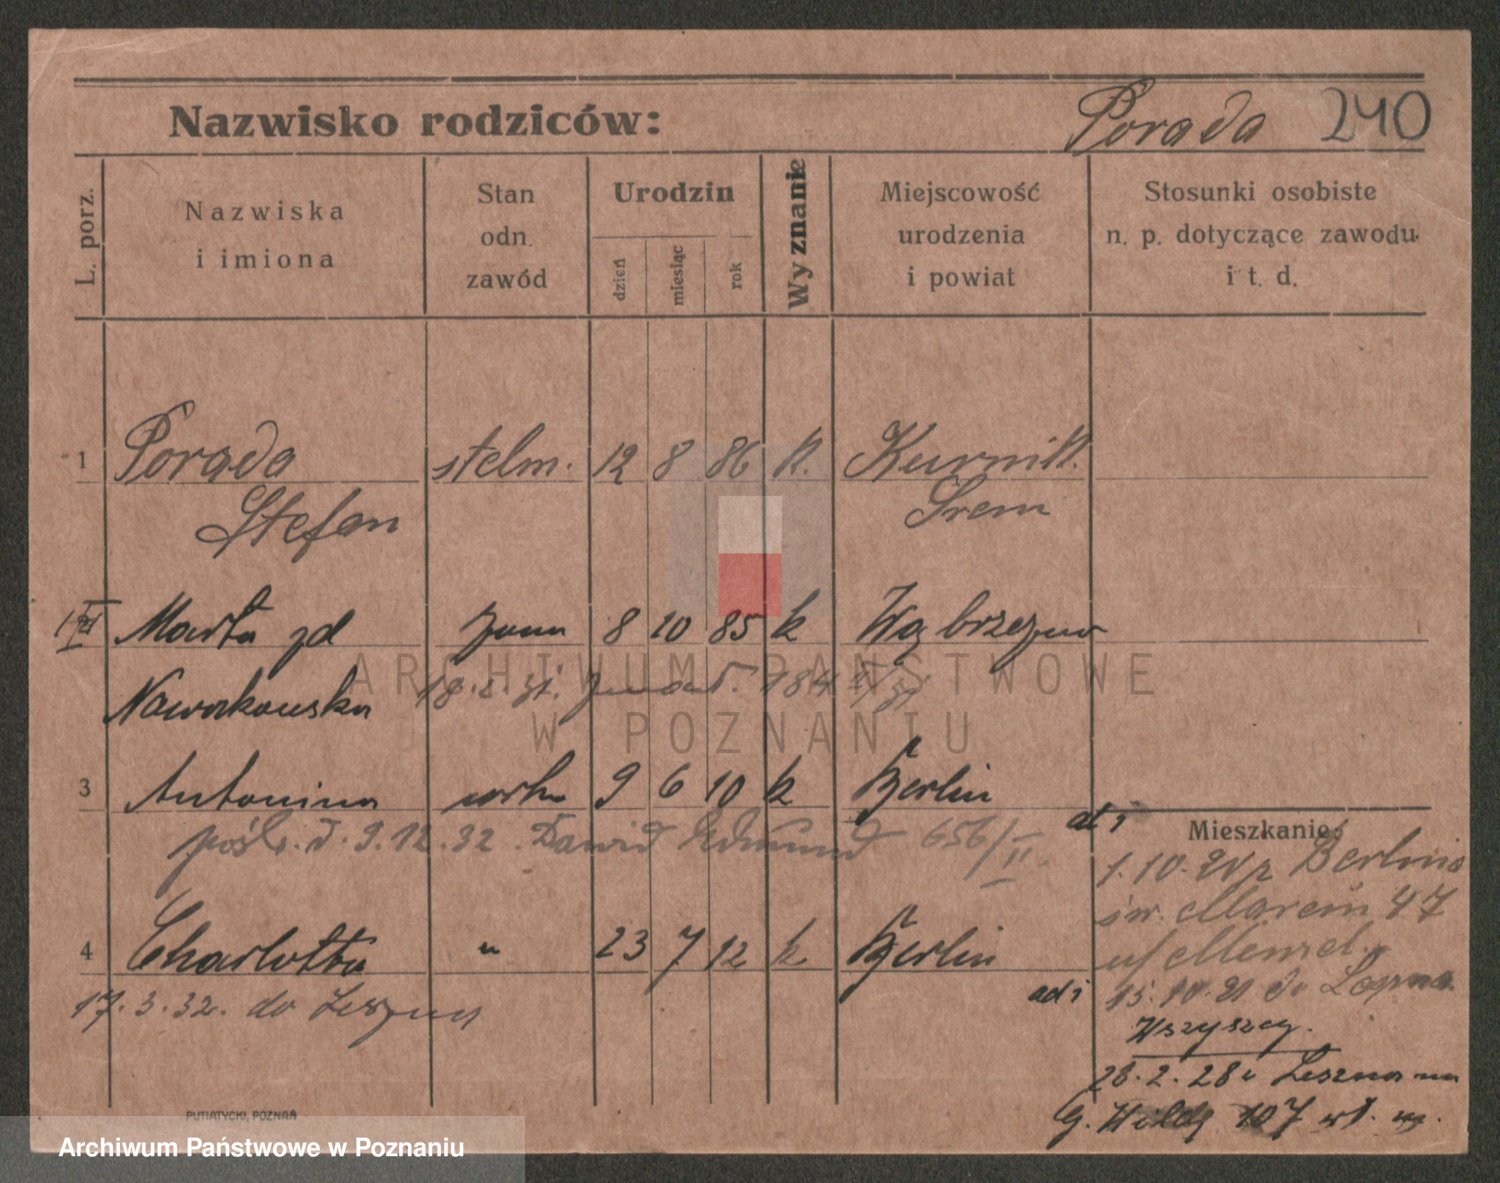 Nazwisko rodziców: Porada 240
L. porz. Nazwiska i imiona Stan odn. zawód Urodzin dzień miesiąc rok Wyznanie Miejscowość urodzenia i powiat Stosunki osobiste n. p. dotyczące zawodu i t. d.
1 Porada stelm. 12 8 86 k. Kurnik.
Stefan Srem
Marta zd 8 10 85 k Wąbrzezno
Nowakowska
ARCHIWUM PAŃSTWOWE
W POZNANIU
3 Antonina córka 9 6 10 k Berlin
Mieszkanie:
pośl. d. 9.12.32. Dawid Edmund 656/II.
1.10. z Berlina
św. Marcin 47
4 Charlotta " 23 7 12 k Berlin
u/ Menzel.
17.3.32. do Leszna
ad 1 15.10.21 do
Wszyscy.
28.2.28 z Leszna na
G. Wildę 107
PUTIATYCKI, POZNAŃ
Archiwum Państwowe w Poznaniu